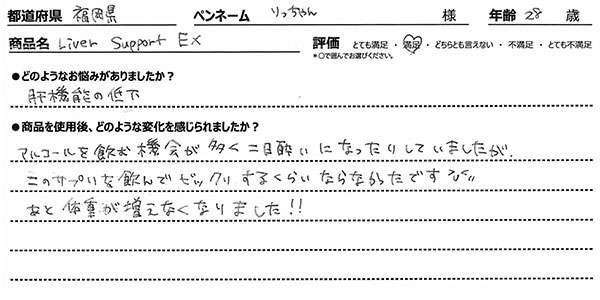 都道府県 福岡県 ペンネーム りっちゃん 様 年齢 28 歳
商品名 Liver Support EX 評価 とても満足 ・ 満足 ・ どちらとも言えない ・ 不満足 ・ とても不満足
*○で囲んでお選びください。
●どのようなお悩みがありましたか？
肝機能の低下
●商品を使用後、どのような変化を感じられましたか？
アルコールを飲む機会が多く二日酔いになったりしていましたが、
このサプリを飲んでビックリするくらいならなかったです
あと体重が増えなくなりました!!